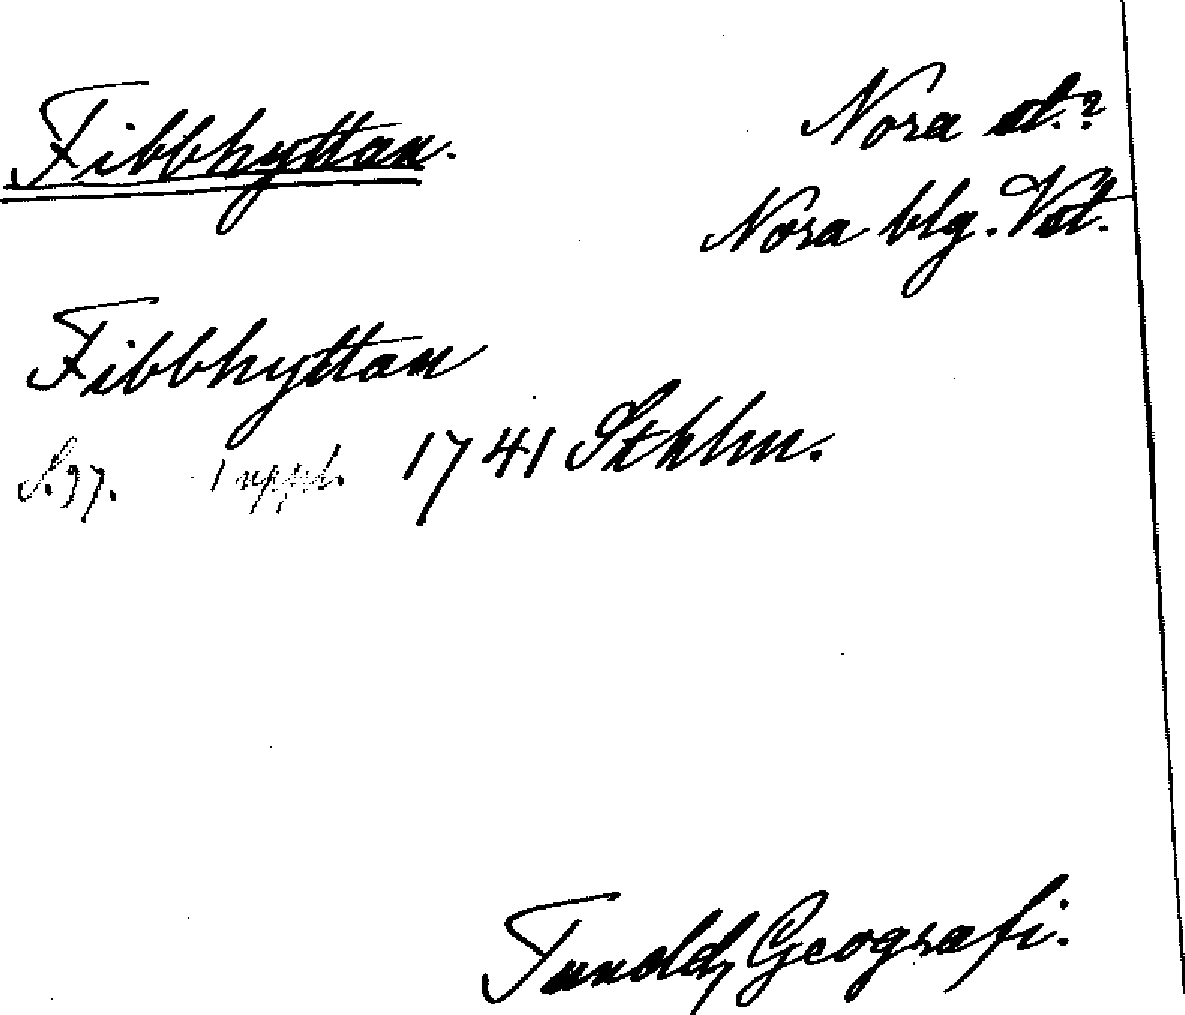 Fibbhyttan.
Nora st.?
Nora blg. Vstl.
Fibbhyttan
S. 97. 1 uppl. 1741 Sthlm.
Tunold, Geografi.